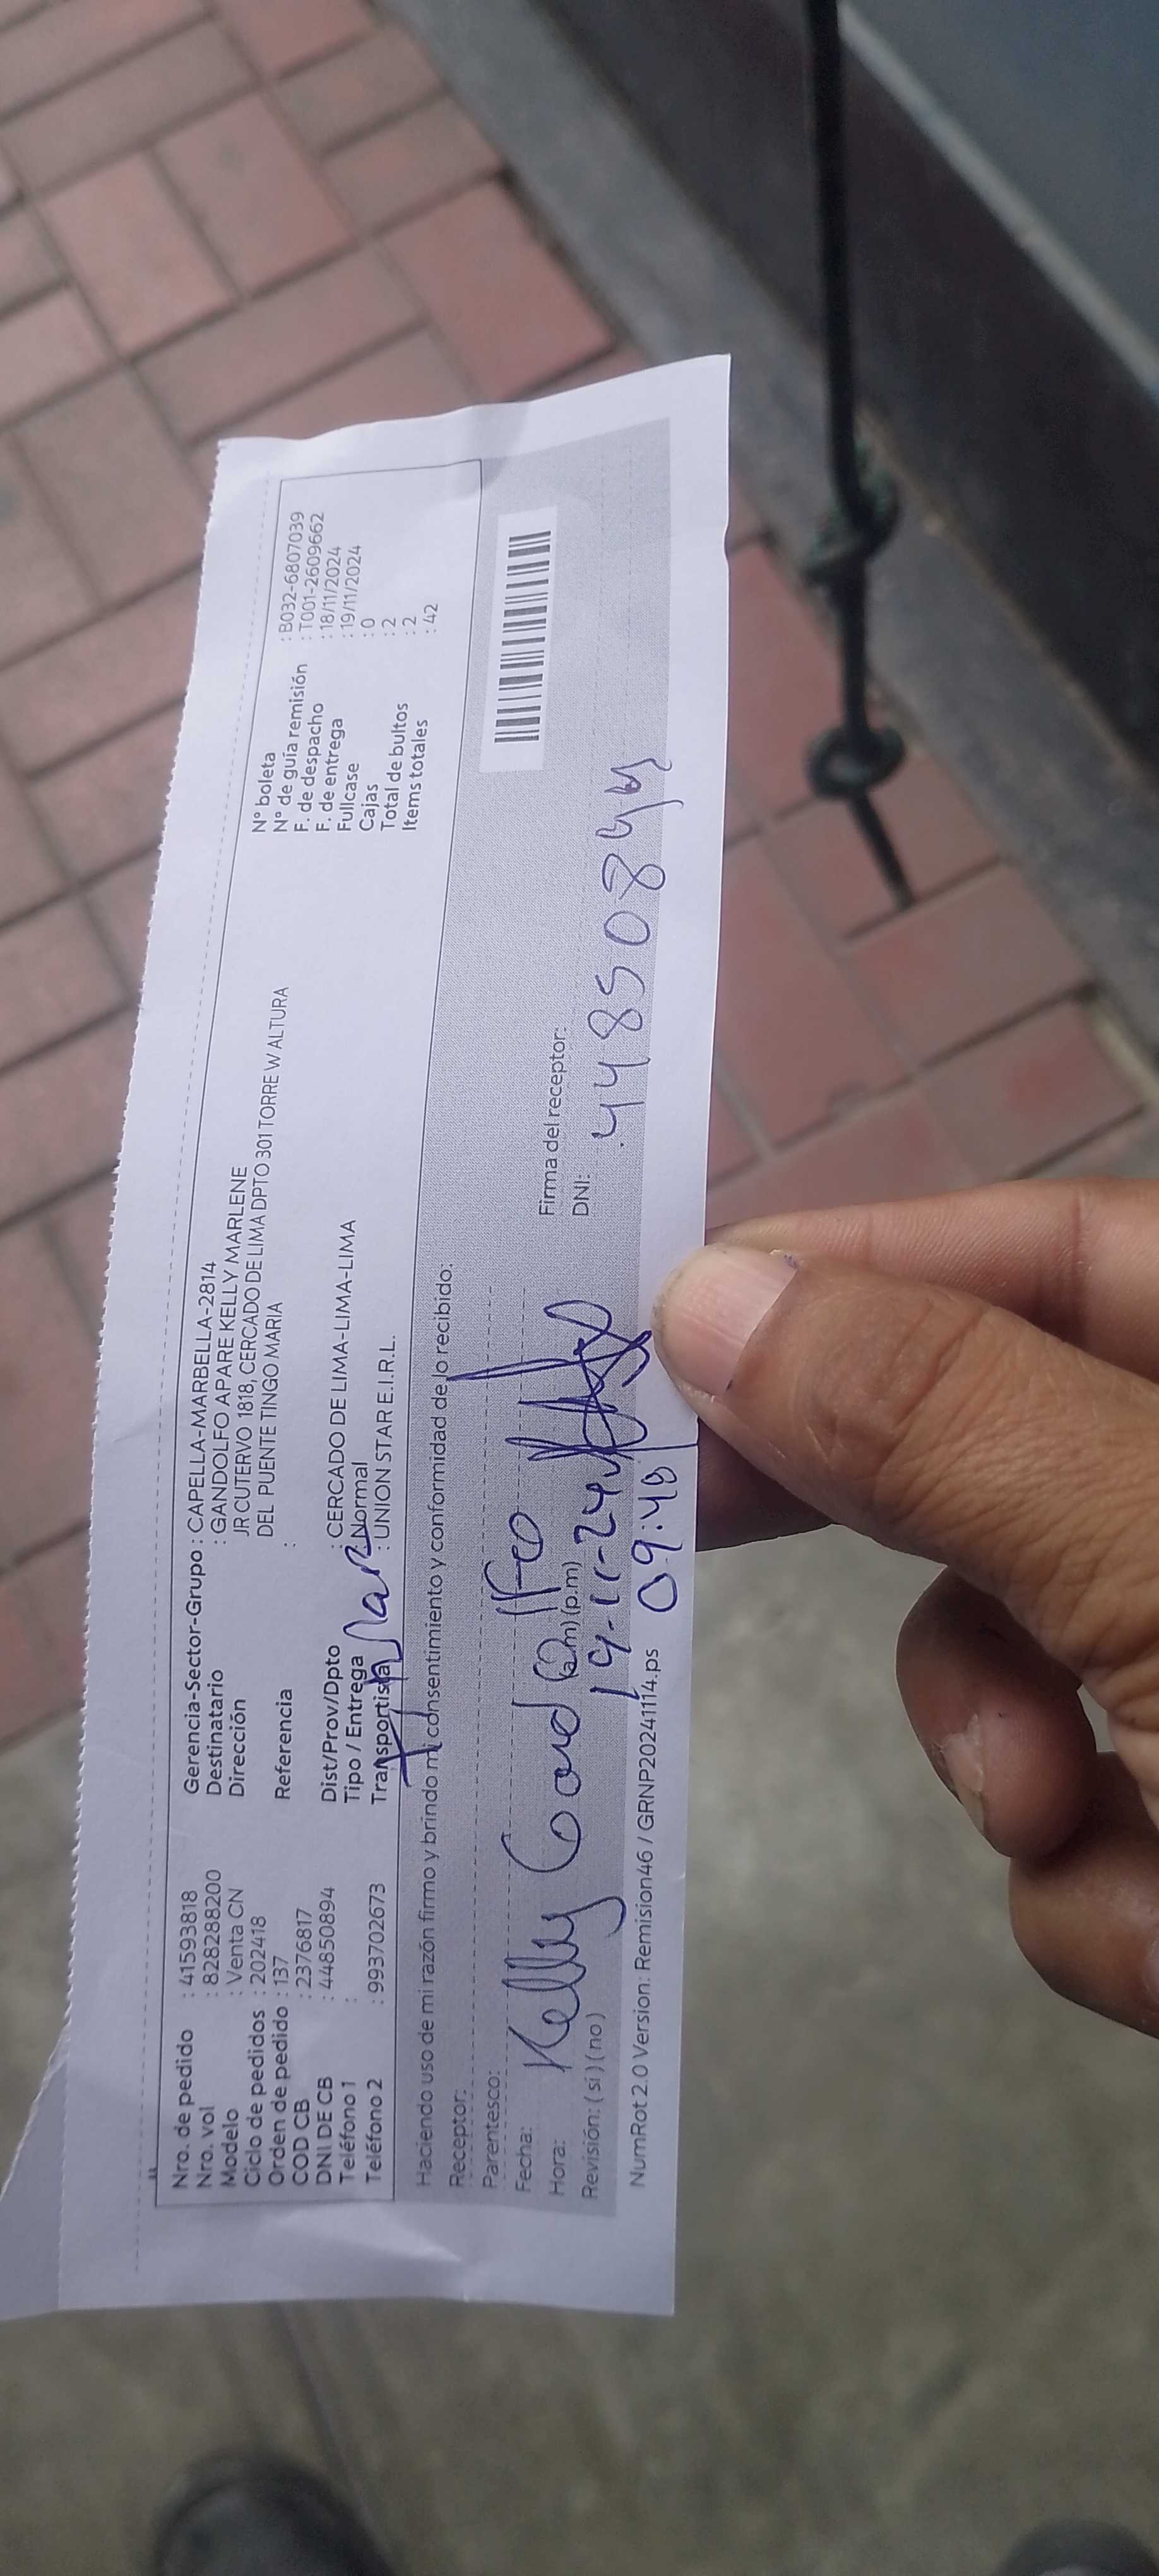 Nro. de pedido : 41593818
Nro. vol : 8282888200
Modelo : Venta CN
Ciclo de pedidos : 202418
Orden de pedido : 137
COD CB : 2376817
DNI DE CB : 44850894
Teléfono 1 :
Teléfono 2 : 993702673
Gerencia-Sector-Grupo : CAPELLA-MARBELLA-2814
Destinatario : GANDOLFO APARE KELLY MARLENE
Dirección JR CUTERVO 1818, CERCADO DE LIMA DPTO 301 TORRE W ALTURA
DEL PUENTE TINGO MARIA
Referencia :
Dist/Prov/Dpto : CERCADO DE LIMA-LIMA-LIMA
Tipo / Entrega : Normal
Transportista : UNION STAR E.I.R.L.
N° boleta : B032-6807039
N° de guía remisión : T001-2609662
F. de despacho : 18/11/2024
F. de entrega : 19/11/2024
Fullcase : 0
Cajas : 2
Total de bultos : 2
Items totales : 42
Haciendo uso de mi razón firmo y brindo mi consentimiento y conformidad de lo recibido.
Receptor:
Parentesco:
Fecha: Kelly
Hora: (a.m) (p.m)
19-11-24
Revisión: ( si ) ( no )
09:48
Firma del receptor:
DNI: 448508
NumRot 2.0 Version: Remision46 / GRNP20241114.ps